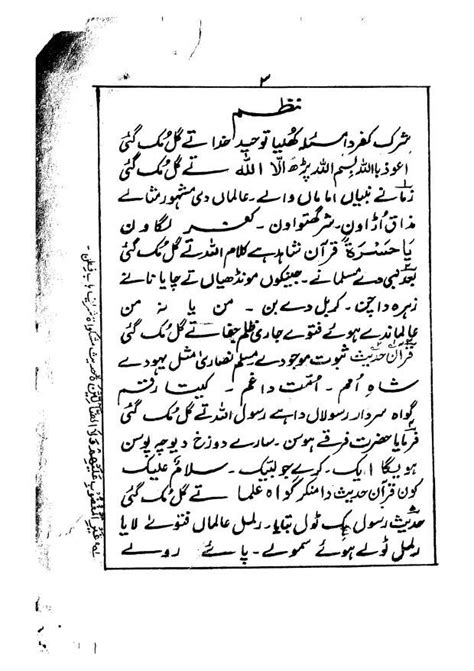 ۲
نظم
شرک کفر دا مسئلہ کھلیا توحید خدا تے گل مُک گئی
اعوذ باللہ بسم اللہ پڑھ الّا اللہ تے گل مُک گئی
زمانے نبیاں اماماں والے۔ عالماں دی مشہور مثالے
مذاق اڑاون۔ شرگھتواون۔ کفر لگاون
یَا حَسْرَةً قرآن شاہد ہے کلام اللہ تے گل مُک گئی
بعد نبی دے مسلمانے۔ جینکوں مونڈھیاں تے چایا نانے
زہرہ دا چن۔ کربل دے بن۔ من یا نہ من
عالماندے ہوئے فتوے جاری ظلم جفا تے گل مُک گئی
قرآن حدیث ثبوت موجود دے مسلم نصاریٰ مثل یہود دے
شاہِ اُمم۔ اُمت دا غم۔ کیتا رقم
گواہ سردار رسولاں دا ہے رسول اللہ تے گل مُک گئی
فرمایا حضرت فرقے ہوسن۔ سارے دوزخ دیوچہ پوسن
ہوسیگا ایک۔ کرے جو لبیک۔ سلامٌ علیک
کون قرآن حدیث دا منکر گواہ علما تے گل مُک گئی
حدیث رسول ہک ٹول بتایا۔ رلمل عالماں فتویٰ لایا
رلمل ٹولے ہوئے سمولے۔ پائے رولے
غَیْرِ الْمَغْضُوْبِ عَلَیْهِمْ وَلَا الضَّالِّیْنَ حدیث مشکوٰۃ شریف باب